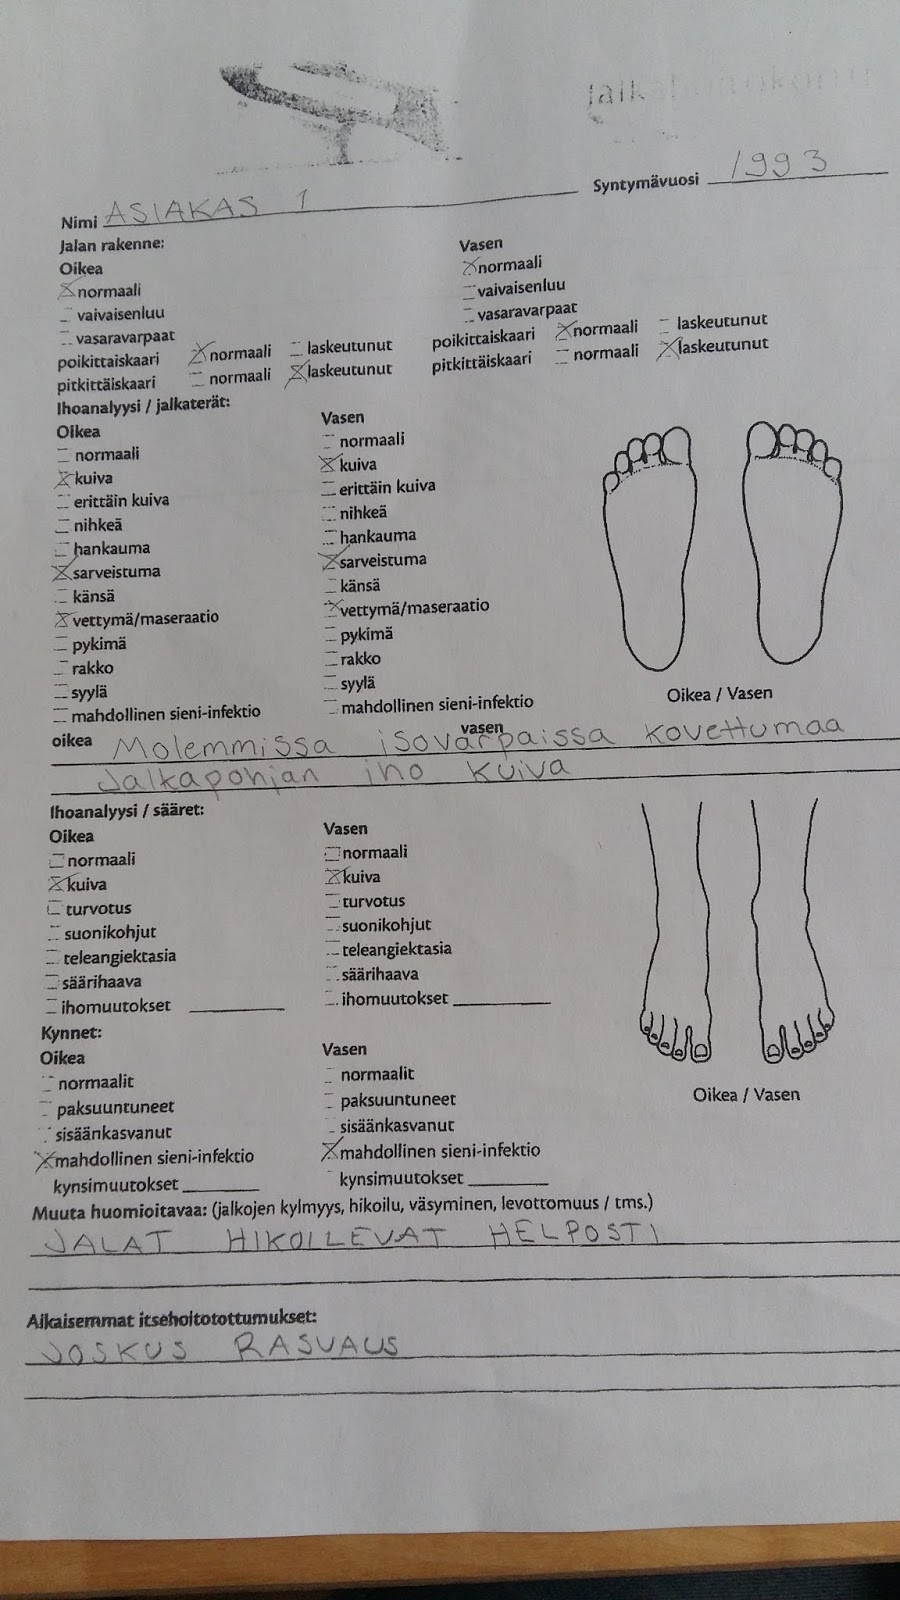 Nimi ASIAKAS 1 Syntymävuosi 1993
Jalan rakenne:
Oikea Vasen
normaali normaali
vaivaisenluu vaivaisenluu
vasaravarpaat vasaravarpaat
poikittaiskaari normaali laskeutunut poikittaiskaari normaali laskeutunut
pitkittäiskaari normaali laskeutunut pitkittäiskaari normaali laskeutunut
Ihoanalyysi / jalkaterät:
Oikea Vasen
normaali normaali
kuiva kuiva
erittäin kuiva erittäin kuiva
nihkeä nihkeä
hankauma hankauma
sarveistuma sarveistuma
känsä känsä
vettymä/maseraatio vettymä/maseraatio
pykimä pykimä
rakko rakko
syylä syylä
mahdollinen sieni-infektio mahdollinen sieni-infektio
Oikea / Vasen
oikea vasen
Molemmissa isovarpaissa kovettumaa
Jalkapohjan iho kuiva
Ihoanalyysi / sääret:
Oikea Vasen
normaali normaali
kuiva kuiva
turvotus turvotus
suonikohjut suonikohjut
teleangiektasia teleangiektasia
säärihaava säärihaava
ihomuutokset ihomuutokset
Kynnet:
Oikea Vasen
normaalit normaalit
paksuuntuneet paksuuntuneet
sisäänkasvanut sisäänkasvanut
mahdollinen sieni-infektio mahdollinen sieni-infektio
kynsimuutokset kynsimuutokset
Oikea / Vasen
Muuta huomioitavaa: (jalkojen kylmyys, hikoilu, väsyminen, levottomuus / tms.)
JALAT HIKOILEVAT HELPOSTI
Aikaisemmat itsehoitotottumukset:
JOSKUS RASVAUS